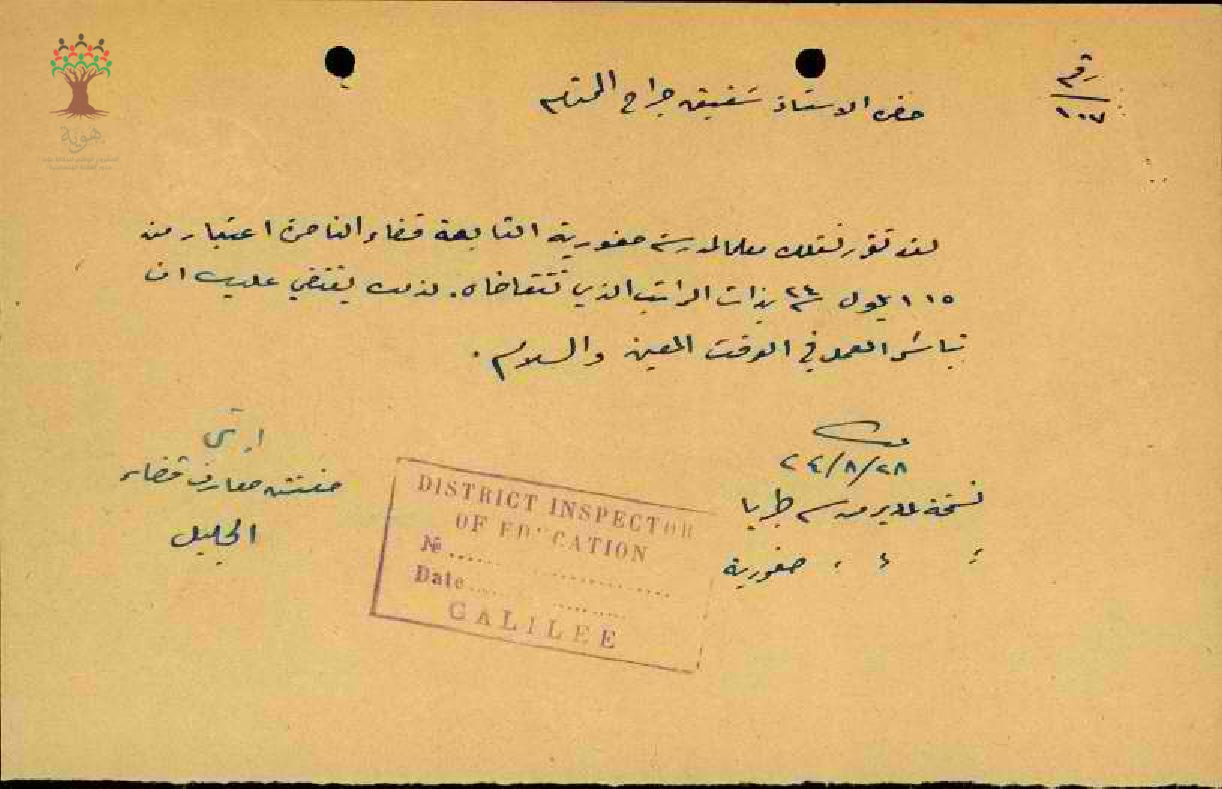 رقم
١٠٧
حضرة الاستاذ شفيق جراح المحترم
لقد تقرر نقلك معلما لمدرسة صفورية التابعة قضاء الناصرة اعتبار من
١٥ ايلول سنة ٢٤ بذات الراتب الذي تتقاضاه. لذلك يقتضي عليك ان
تباشر العمل في الوقت المعين والسلام.
٢٤/٨/٢٨
مفتش معارف قضاء
الجليل
نسخة لمدير مدرسة طبريا
صفورية
DISTRICT INSPECTOR
OF EDUCATION
№ ..........
Date ..........
GALILEE
هوية